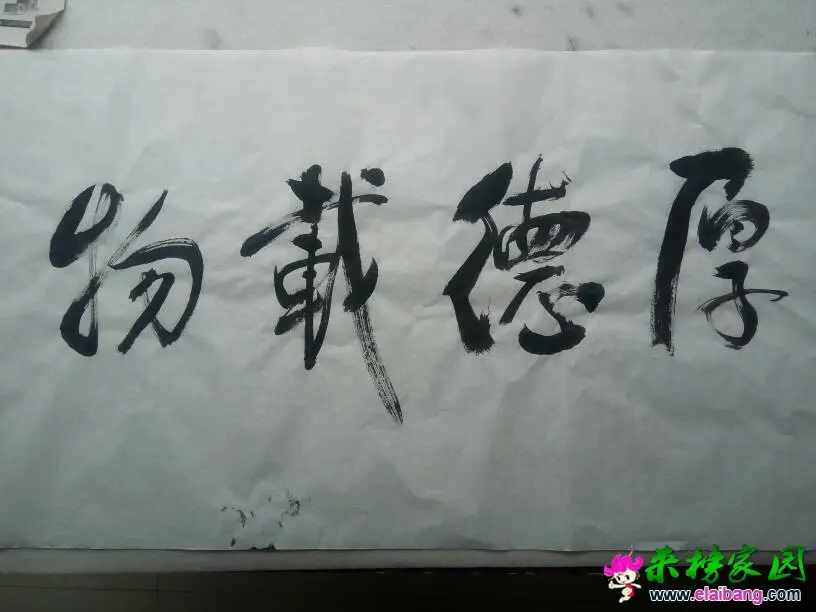 厚德载物
来榜家园
www.elaibang.com